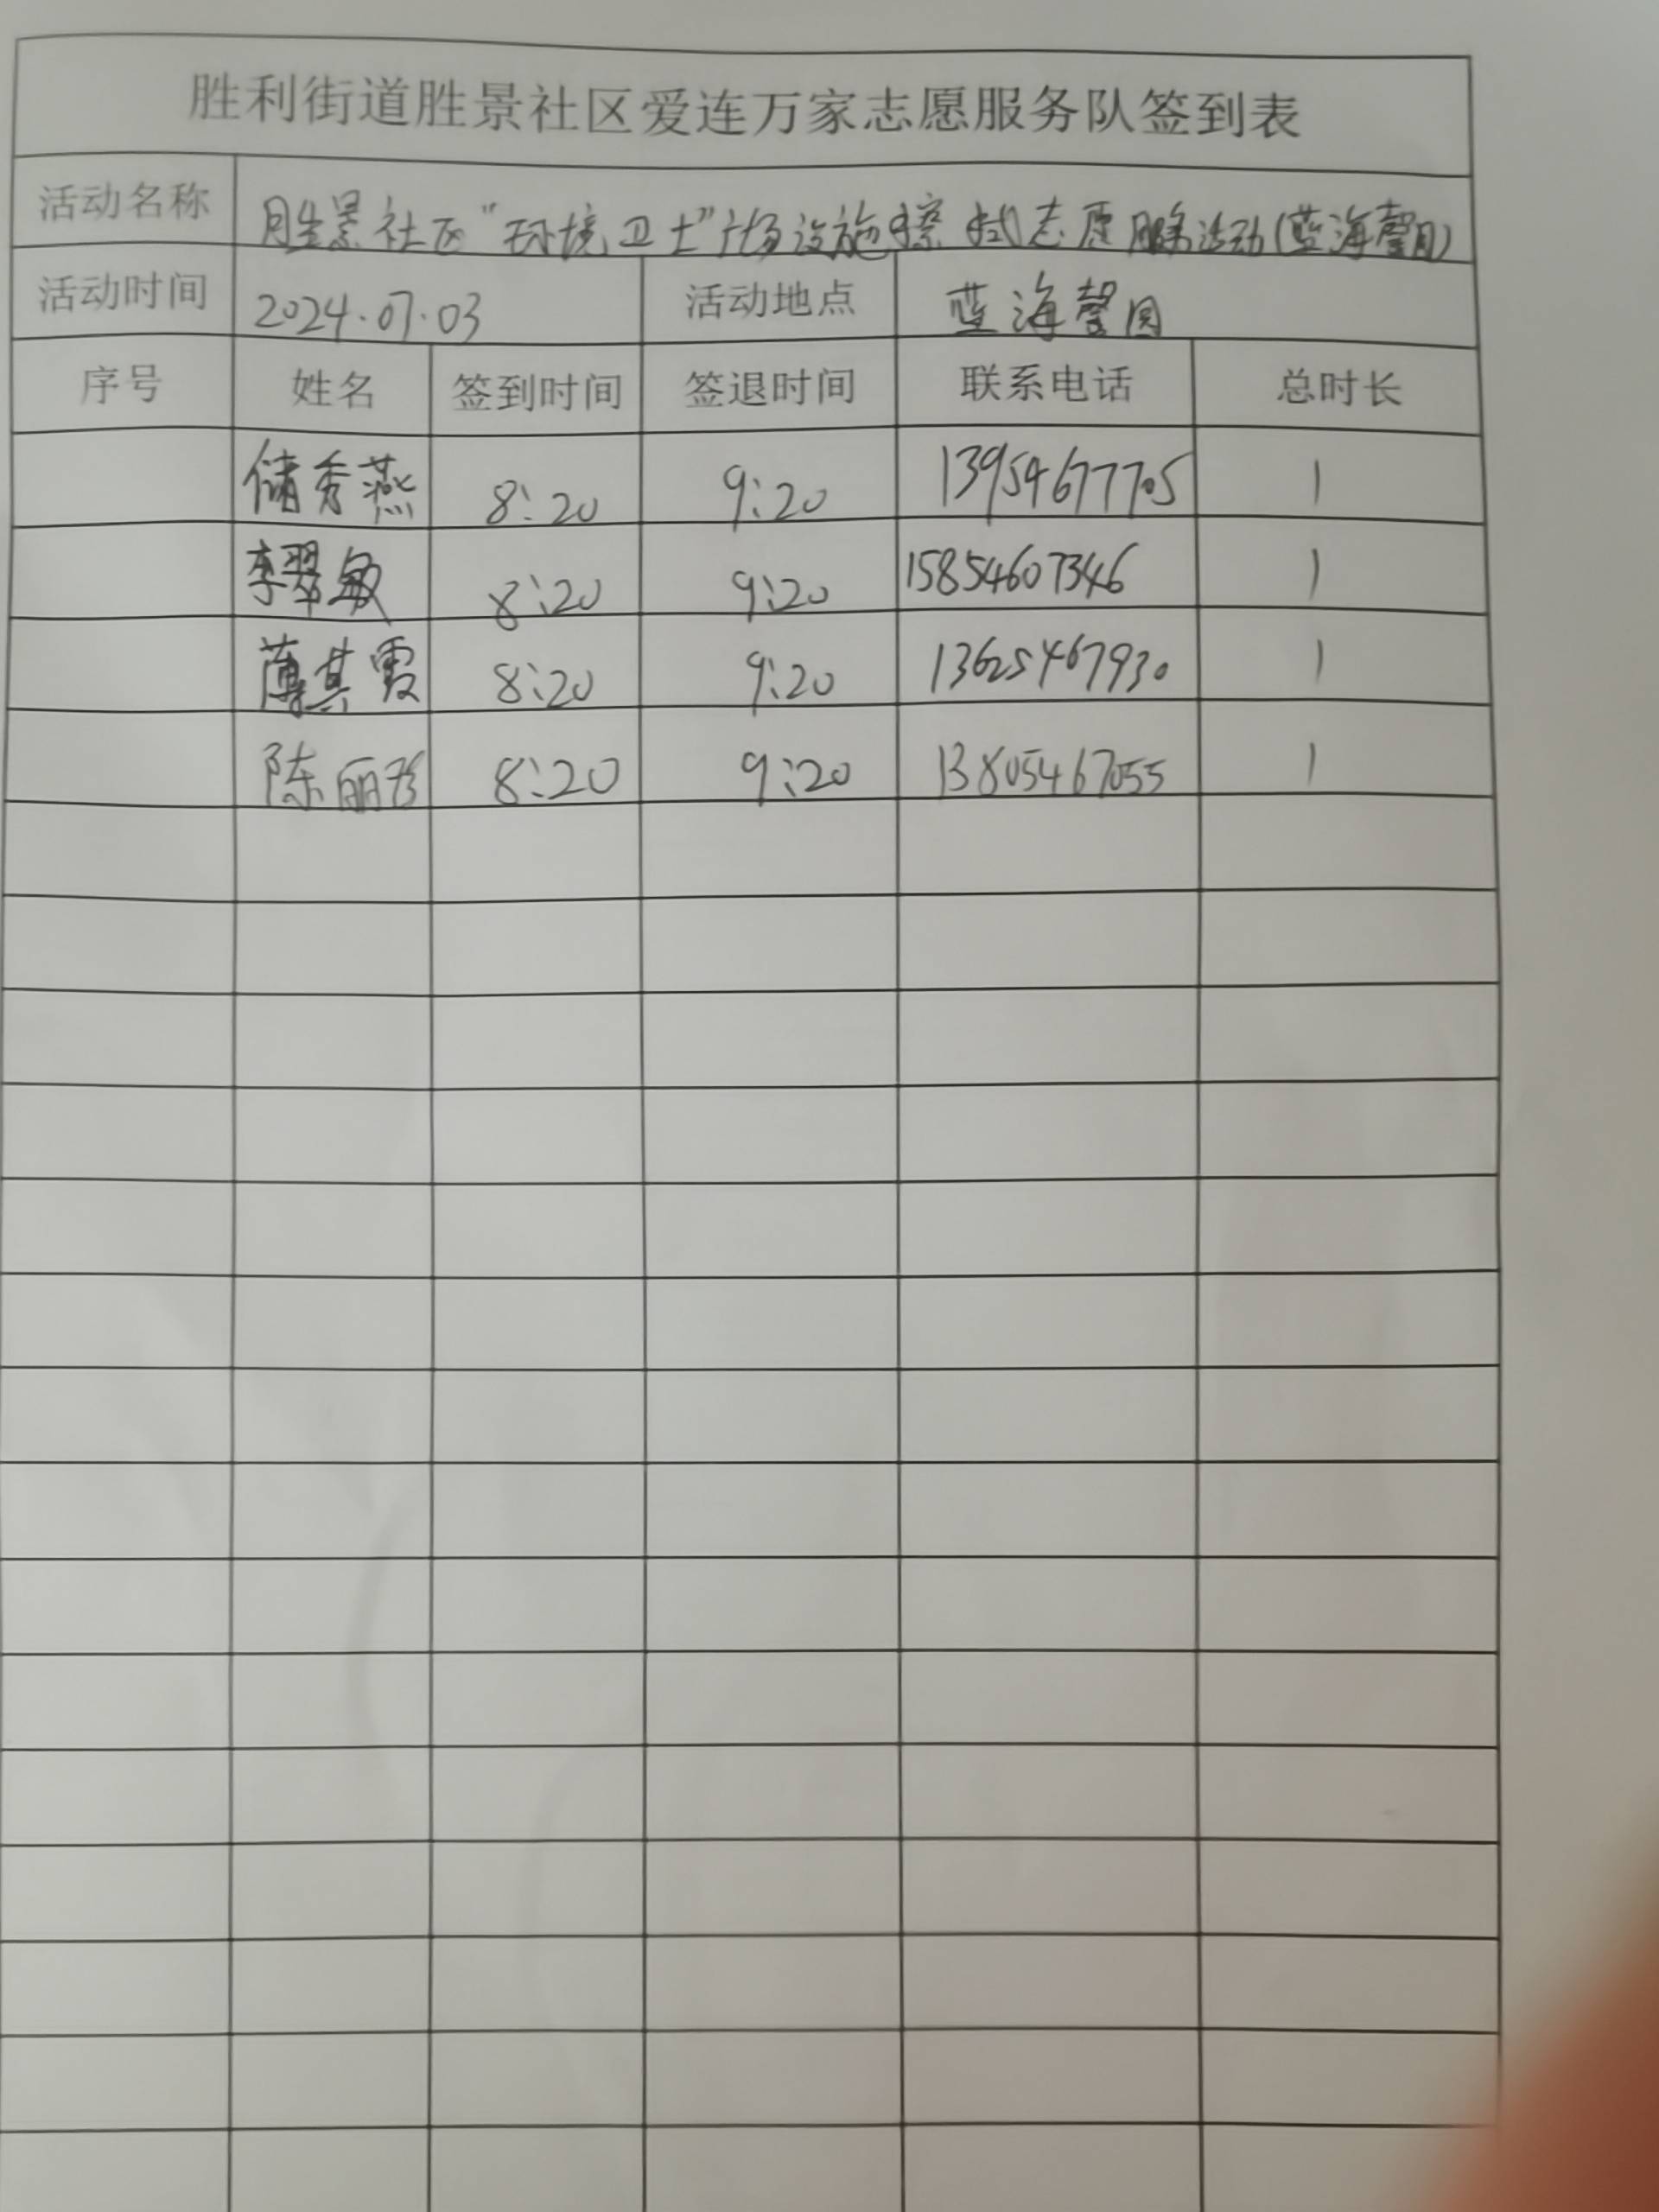 胜利街道胜景社区爱连万家志愿服务队签到表
活动名称 胜景社区“环境卫士”广场设施擦拭志愿服务活动(蓝海馨园)
活动时间 2024.07.03 活动地点 蓝海馨园
序号 姓名 签到时间 签退时间 联系电话 总时长
储秀燕 8:20 9:20 13954677705 1
李翠敏 8:20 9:20 15854607346 1
薄其霞 8:20 9:20 13625467930 1
陈丽珍 8:20 9:20 13805467055 1